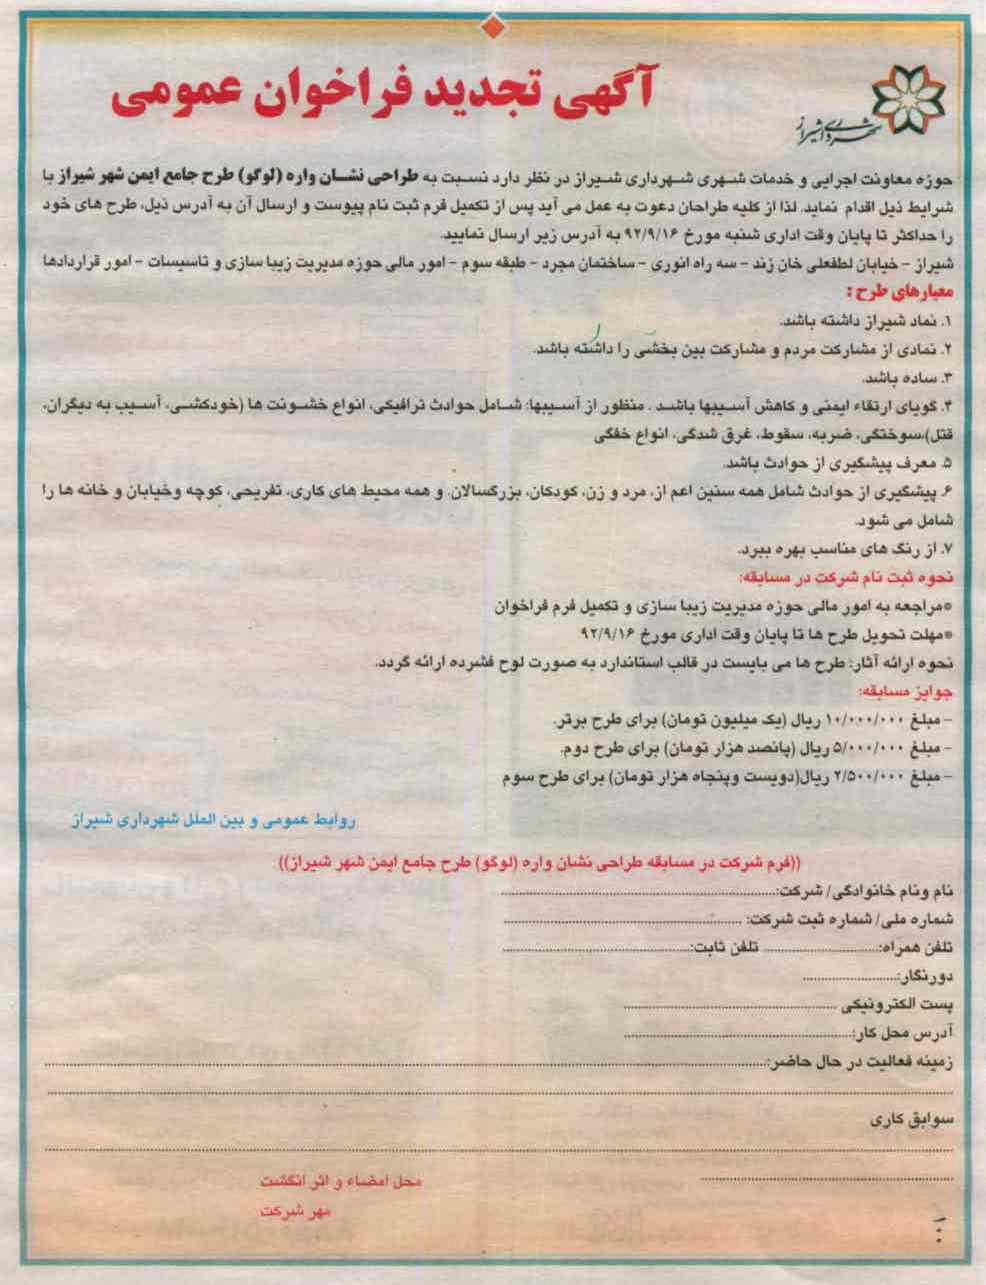 شهرداری شیراز
آگهی تجدید فراخوان عمومی
حوزه معاونت اجرایی و خدمات شهری شهرداری شیراز در نظر دارد نسبت به طراحی نشان واره (لوگو) طرح جامع ایمن شهر شیراز با
شرایط ذیل اقدام نماید. لذا از کلیه طراحان دعوت به عمل می آید پس از تکمیل فرم ثبت نام پیوست و ارسال آن به آدرس ذیل، طرح های خود
را حداکثر تا پایان وقت اداری شنبه مورخ ۹۲/۹/۱۶ به آدرس زیر ارسال نمایید.
شیراز - خیابان لطفعلی خان زند - سه راه انوری - ساختمان مجرد - طبقه سوم - امور مالی حوزه مدیریت زیبا سازی و تاسیسات - امور قراردادها
معیارهای طرح :
۱. نماد شیراز داشته باشد.
۲. نمادی از مشارکت مردم و مشارکت بین بخشی را داشته باشد.
۳. ساده باشد.
۴. گویای ارتقاء ایمنی و کاهش آسیبها باشد . منظور از آسیبها: شامل حوادث ترافیکی، انواع خشونت ها (خودکشی، آسیب به دیگران،
قتل)،سوختگی، ضربه، سقوط، غرق شدگی، انواع خفگی
۵. معرف پیشگیری از حوادث باشد.
۶. پیشگیری از حوادث شامل همه سنین اعم از، مرد و زن، کودکان، بزرگسالان. و همه محیط های کاری، تفریحی، کوچه وخیابان و خانه ها را
شامل می شود.
۷. از رنگ های مناسب بهره ببرد.
نحوه ثبت نام شرکت در مسابقه:
*مراجعه به امور مالی حوزه مدیریت زیبا سازی و تکمیل فرم فراخوان
*مهلت تحویل طرح ها تا پایان وقت اداری مورخ ۹۲/۹/۱۶
نحوه ارائه آثار: طرح ها می بایست در قالب استاندارد به صورت لوح فشرده ارائه گردد.
جوایز مسابقه:
- مبلغ ۱۰/۰۰۰/۰۰۰ ریال (یک میلیون تومان) برای طرح برتر.
- مبلغ ۵/۰۰۰/۰۰۰ ریال (پانصد هزار تومان) برای طرح دوم.
- مبلغ ۲/۵۰۰/۰۰۰ ریال(دویست وپنجاه هزار تومان) برای طرح سوم
روابط عمومی و بین الملل شهرداری شیراز
((فرم شرکت در مسابقه طراحی نشان واره (لوگو) طرح جامع ایمن شهر شیراز))
نام ونام خانوادگی/ شرکت:....................
شماره ملی/ شماره ثبت شرکت: ....................
تلفن همراه:.................... تلفن ثابت:....................
دورنگار:....................
پست الکترونیکی ....................
آدرس محل کار:....................
زمینه فعالیت در حال حاضر:....................
سوابق کاری
محل امضاء و اثر انگشت
مهر شرکت